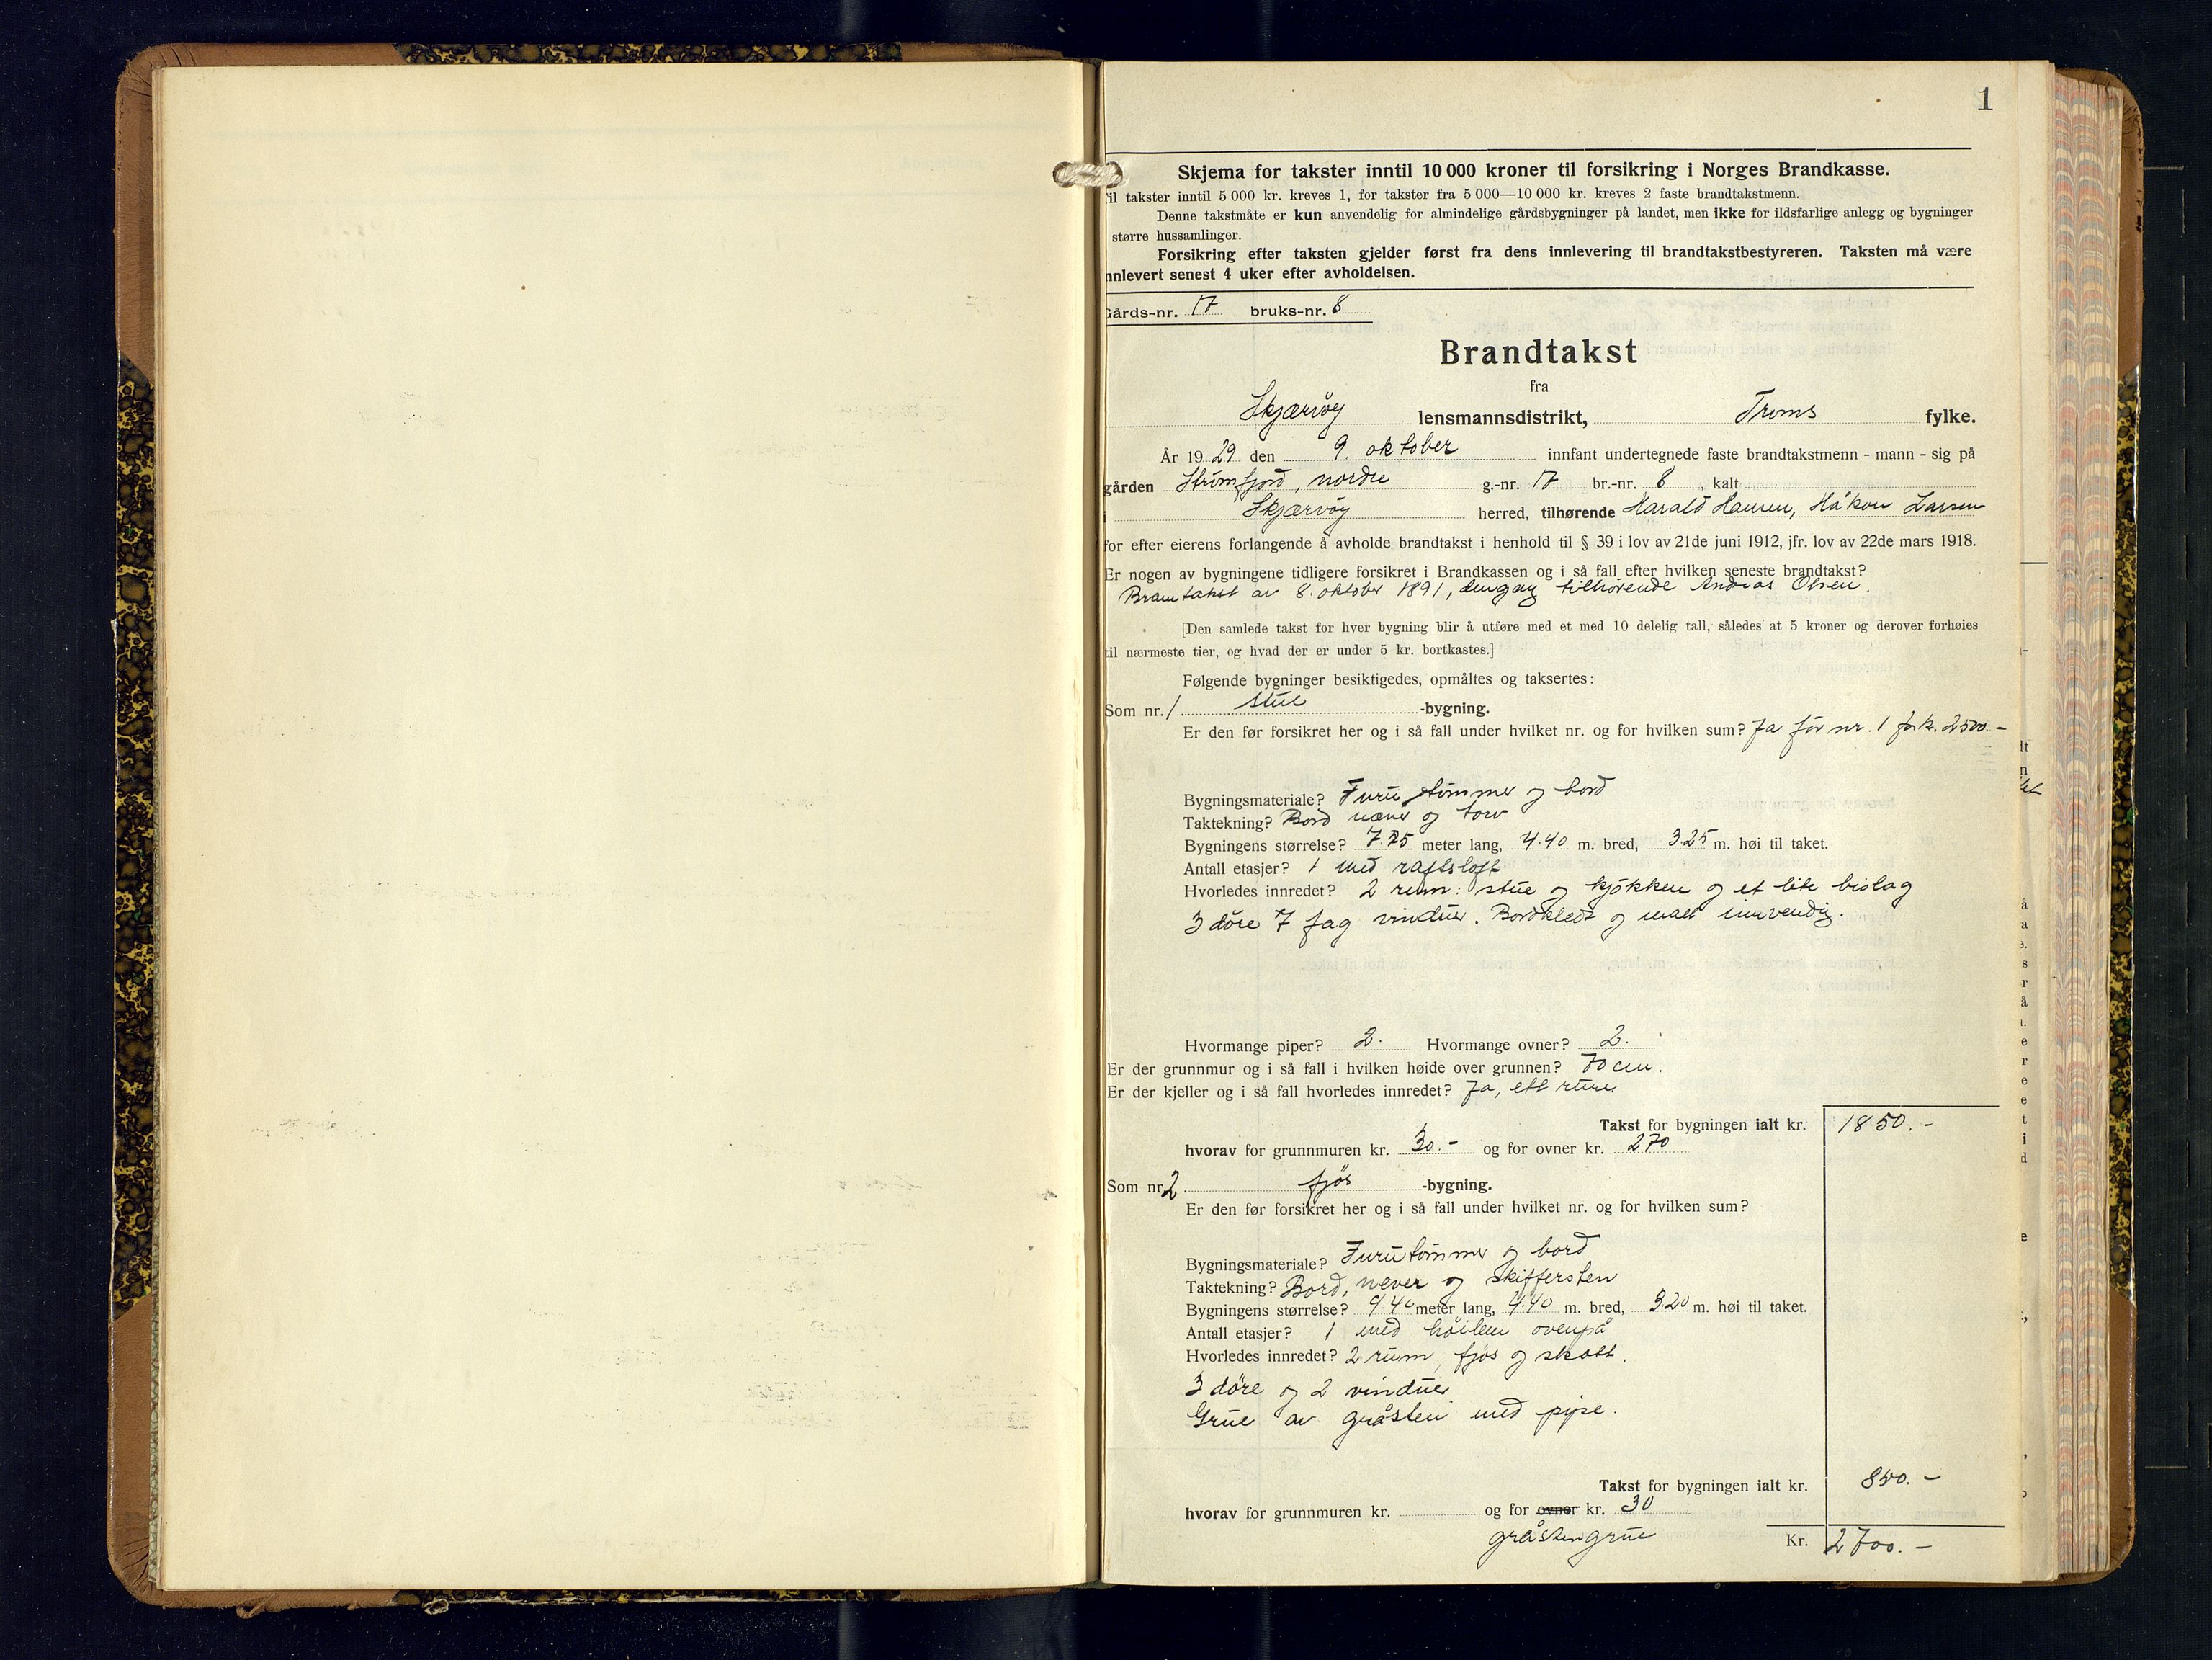 1
Skjema for takster inntil 10 000 kroner til forsikring i Norges Brandkasse.
il takster inntil 5 000 kr. kreves 1, for takster fra 5 000—10 000 kr. kreves 2 faste brandtakstmenn.
Denne takstmåte er kun anvendelig for almindelige gårdsbygninger på landet, men ikke for ildsfarlige anlegg og bygninger
større hussamlinger.
Forsikring efter taksten gjelder først fra dens innlevering til brandtakstbestyreren. Taksten må være
nnlevert senest 4 uker efter avholdelsen.
Gårds-nr. 17 bruks-nr. 8
Brandtakst
fra
Skjærvøy lensmannsdistrikt, Troms fylke.
År 1929 den 9. oktober innfant undertegnede faste brandtakstmenn - mann - sig på
gården Strømfjord, nordre g.-nr. 17 br.-nr. 8, kalt
i Skjærvøy herred, tilhørende Harald Hansen, Håkon Larsen
for efter eierens forlangende å avholde brandtakst i henhold til § 39 i lov av 21de juni 1912, jfr. lov av 22de mars 1918.
Er nogen av bygningene tidligere forsikret i Brandkassen og i så fall efter hvilken seneste brandtakst?
Brantakst av 8. oktober 1891, dengang tilhørende Andreas Olsen.
[Den samlede takst for hver bygning blir å utføre med et med 10 delelig tall, således at 5 kroner og derover forhøies
til nærmeste tier, og hvad der er under 5 kr. bortkastes.]
Følgende bygninger besiktigedes, opmåltes og taksertes:
Som nr. 1 stue -bygning.
Er den før forsikret her og i så fall under hvilket nr. og for hvilken sum? Ja før nr. 1 for k. 2500.-
Bygningsmateriale? Furutømmer og bord
Taktekning? Bord næver og torv
Bygningens størrelse? 7.75 meter lang, 4.40 m. bred, 3.25 m. høi til taket.
Antall etasjer? 1 med raftsloft
Hvorledes innredet? 2 rum: stue og kjøkken og et lite bislag
3 døre 7 fag vinduer. Bordkledt og malt innvendig.
Hvormange piper? 2. Hvormange ovner? 2.
Er der grunnmur og i så fall i hvilken høide over grunnen? 70 cm.
Er der kjeller og i så fall hvorledes innredet? Ja, ett rum
Takst for bygningen ialt kr. 1850.-
hvorav for grunnmuren kr. 30.- og for ovner kr. 270
Som nr. 2 fjøs -bygning.
Er den før forsikret her og i så fall under hvilket nr. og for hvilken sum?
Bygningsmateriale? Furutømmer og bord
Taktekning? Bord, never og skiffersten
Bygningens størrelse? 9.40 meter lang, 4.40 m. bred, 3.20 m. høi til taket.
Antall etasjer? 1 med høilem ovenpå
Hvorledes innredet? 2 rum, fjøs og skott.
3 døre og 2 vinduer
Grue av gråsten med pipe.
Takst for bygningen ialt kr. 850.-
hvorav for grunnmuren kr. og for ovner kr. 30
gråstengrue
Kr. 2700.-